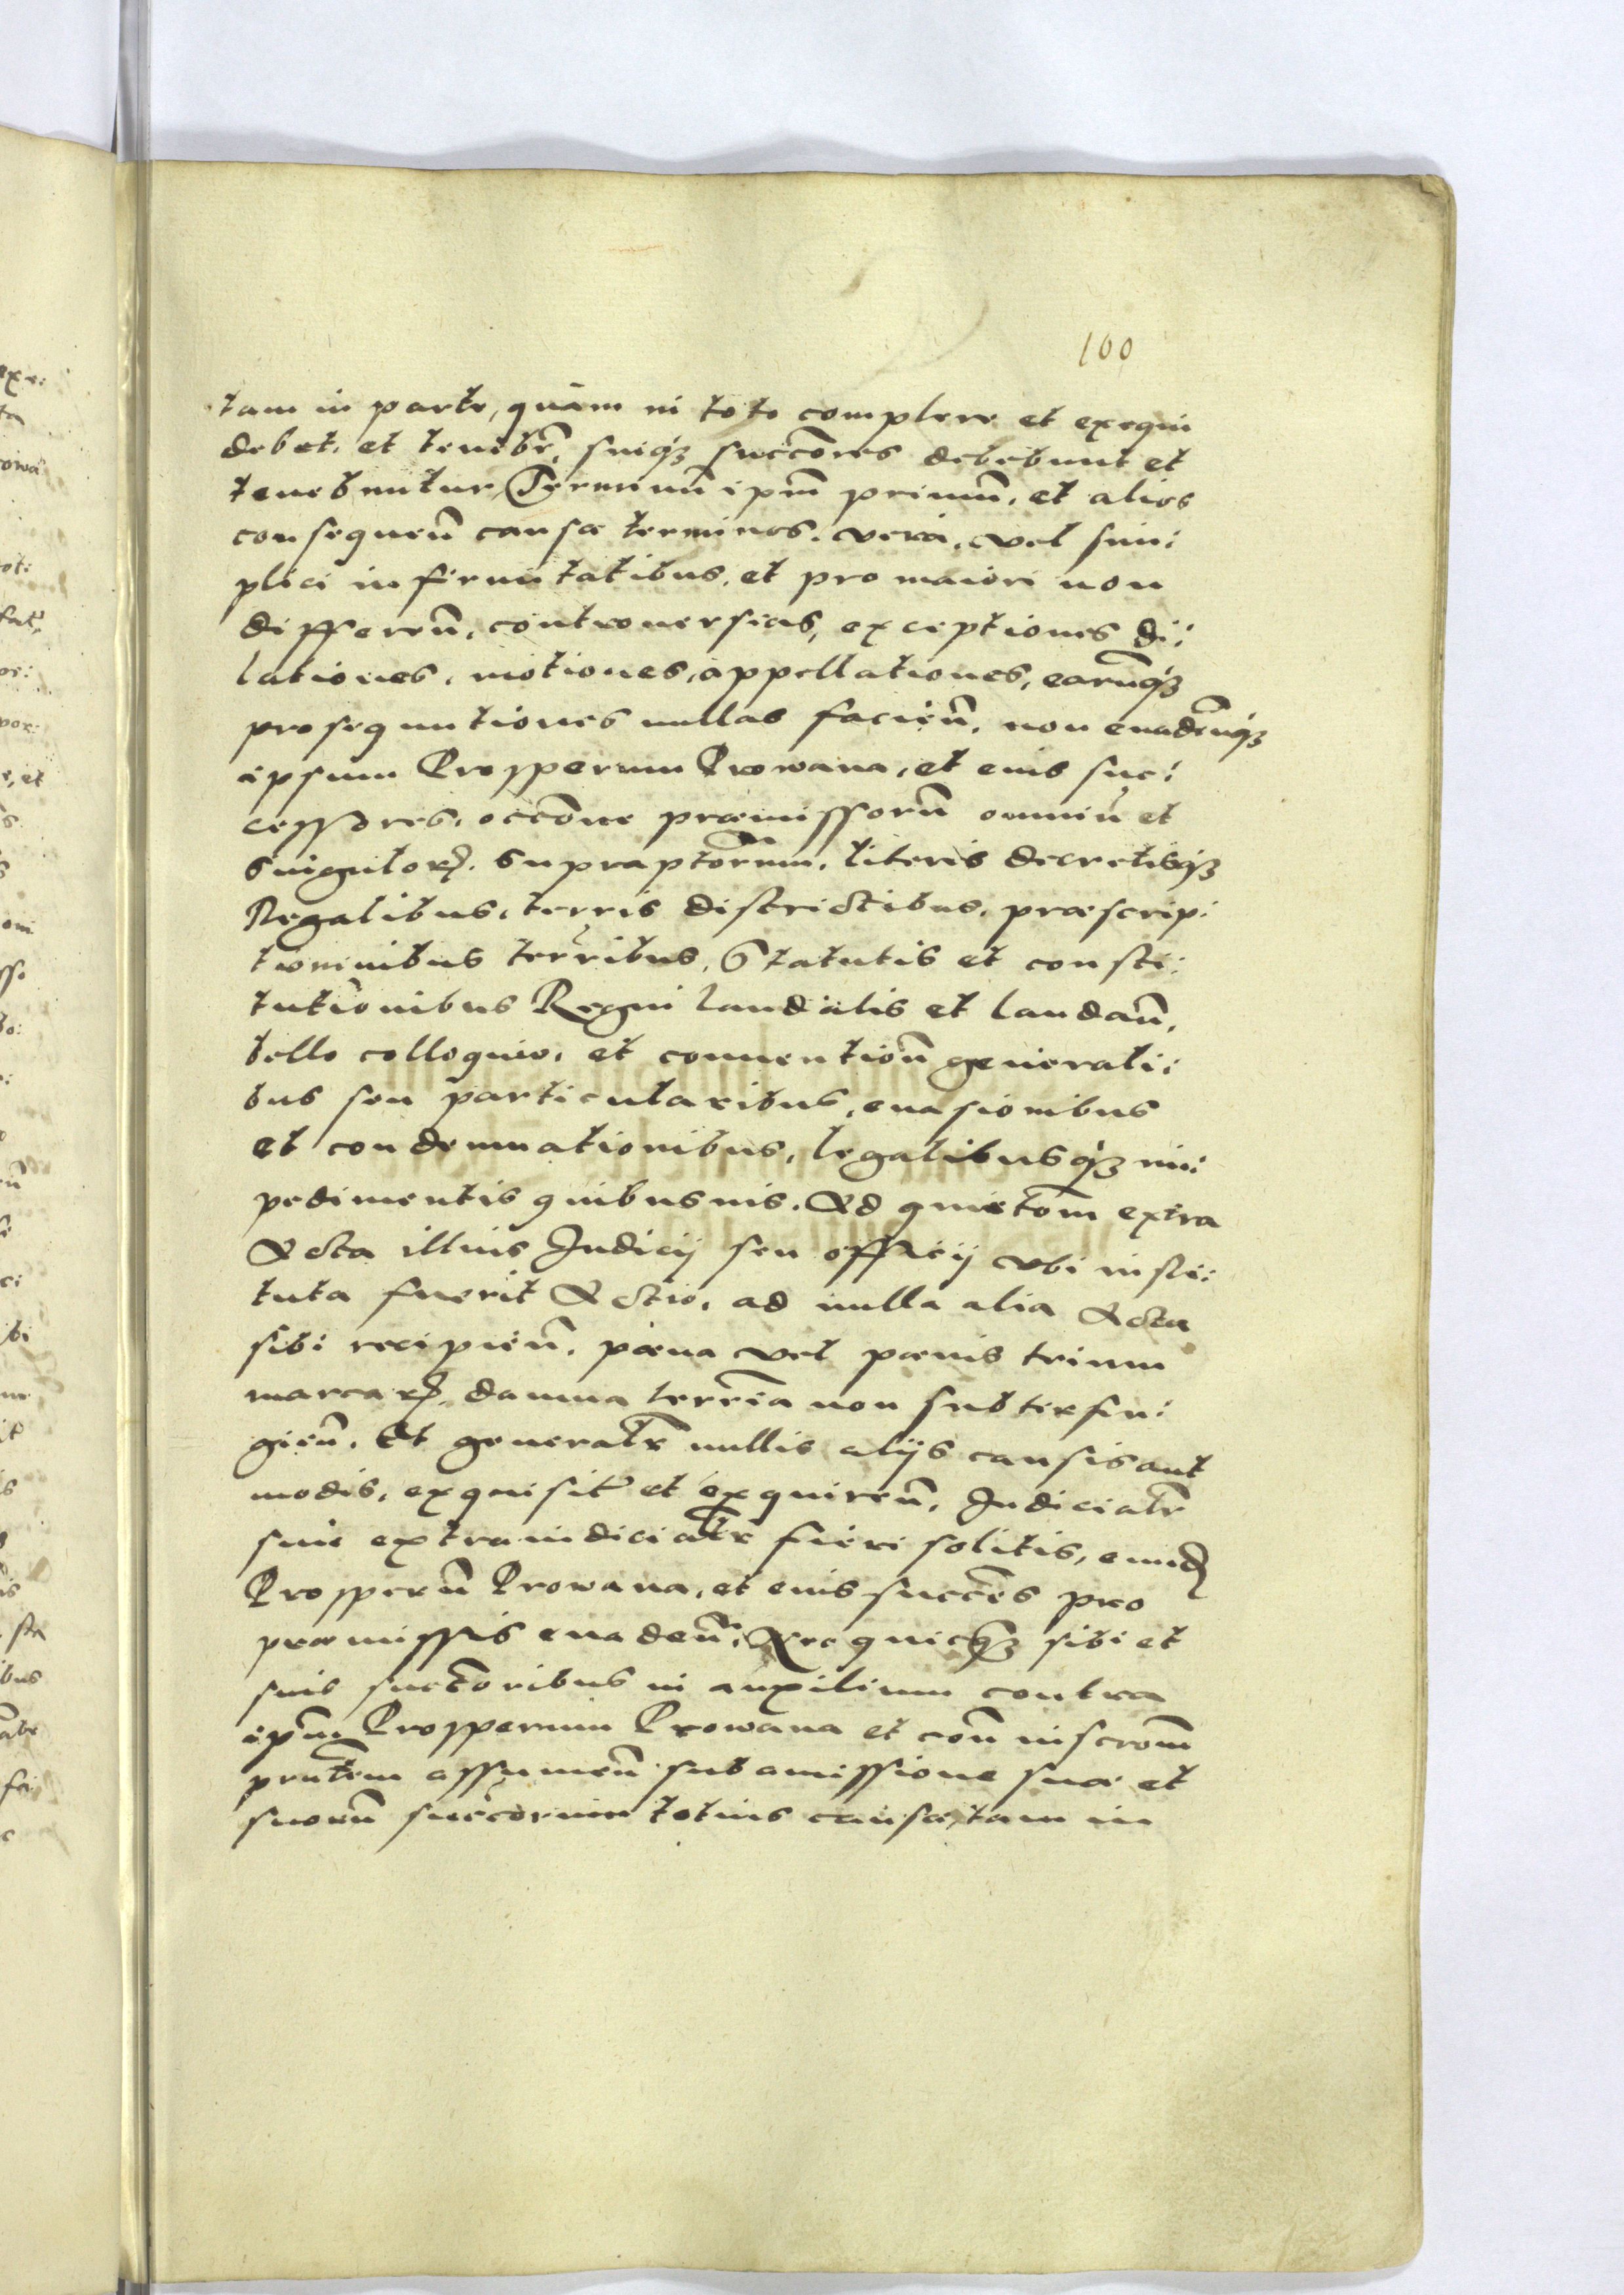 100
tam in parte, quàm in toto complere et exequi
debet, et tenebr̃, suiq́ꝫ succc̃ores debebunt et
tenebuntur, Terminũ ip̃m primũ, et alios
consequeñ causæ terminos, vera, vel sim:
plici infirmitatibus, et pro maiori non
differeñ, controuersias, exceptiones di:
lationes, motiones, appellationes, earũq́ꝫ
prosequutiones nullas facieñ, non euadeñq́ꝫ
ipsum Prosperum Prowana, et eius suc:
cessores, occc̃one præmissorũ omniũ et
singulorꝝ supraptõrum, literis decretisq́ꝫ
Regalibus, terris districtibus, præscrip:
tionibus terr̃ibus, Statutis et consti:
tutionibus Regni laudatis et laudañ,
bello colloquio, et conuentioñ generali:
bus seu particularibus, euasionibus
et condemnationibus, legalibusq́ꝫ im:
pedimentis quibusuis. Ad quietõm extra
Acta illius Judicij seu officij vbi insti:
tuta fuerit Actio, ad nulla alia Acta
sibi recipieñ, pæna vel pænis trium
marcarꝝ, damna terr̃ia non subterfu:
gieñ. Et generalr̃ nullis alijs causis aut
modis, exquisit̃ et exquireñ, Judicialr̃
siue extraiudicialr̃ fieri solitis, eund
Prosperũ Prowana, et eius succc̃es pro
præmissis euadeñ, Nec quicq̃ꝫ sibi et
suis succc̃oribus in auxilium contra
ip̃m Prosperum Prowana et coñ inscrõm
prñtem assumeñ sub amissione suæ et
suorũ succc̃orum totius causæ, tam in